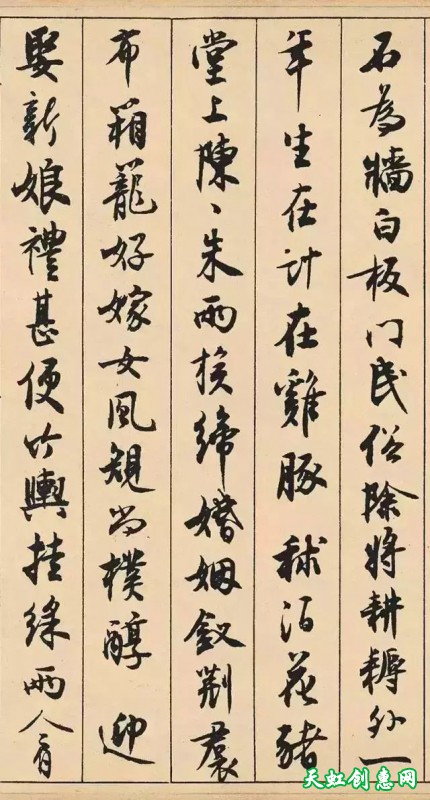 石為牆白板門民俗除將耕耨外一
年生在計在雞豚秫酒花豬
堂上陳、朱兩族締婚姻釵荊裠
布箱籠好嫁女風規尚樸醇迎
娶新娘禮甚便竹輿挂綵兩人肩
天虹创惠网